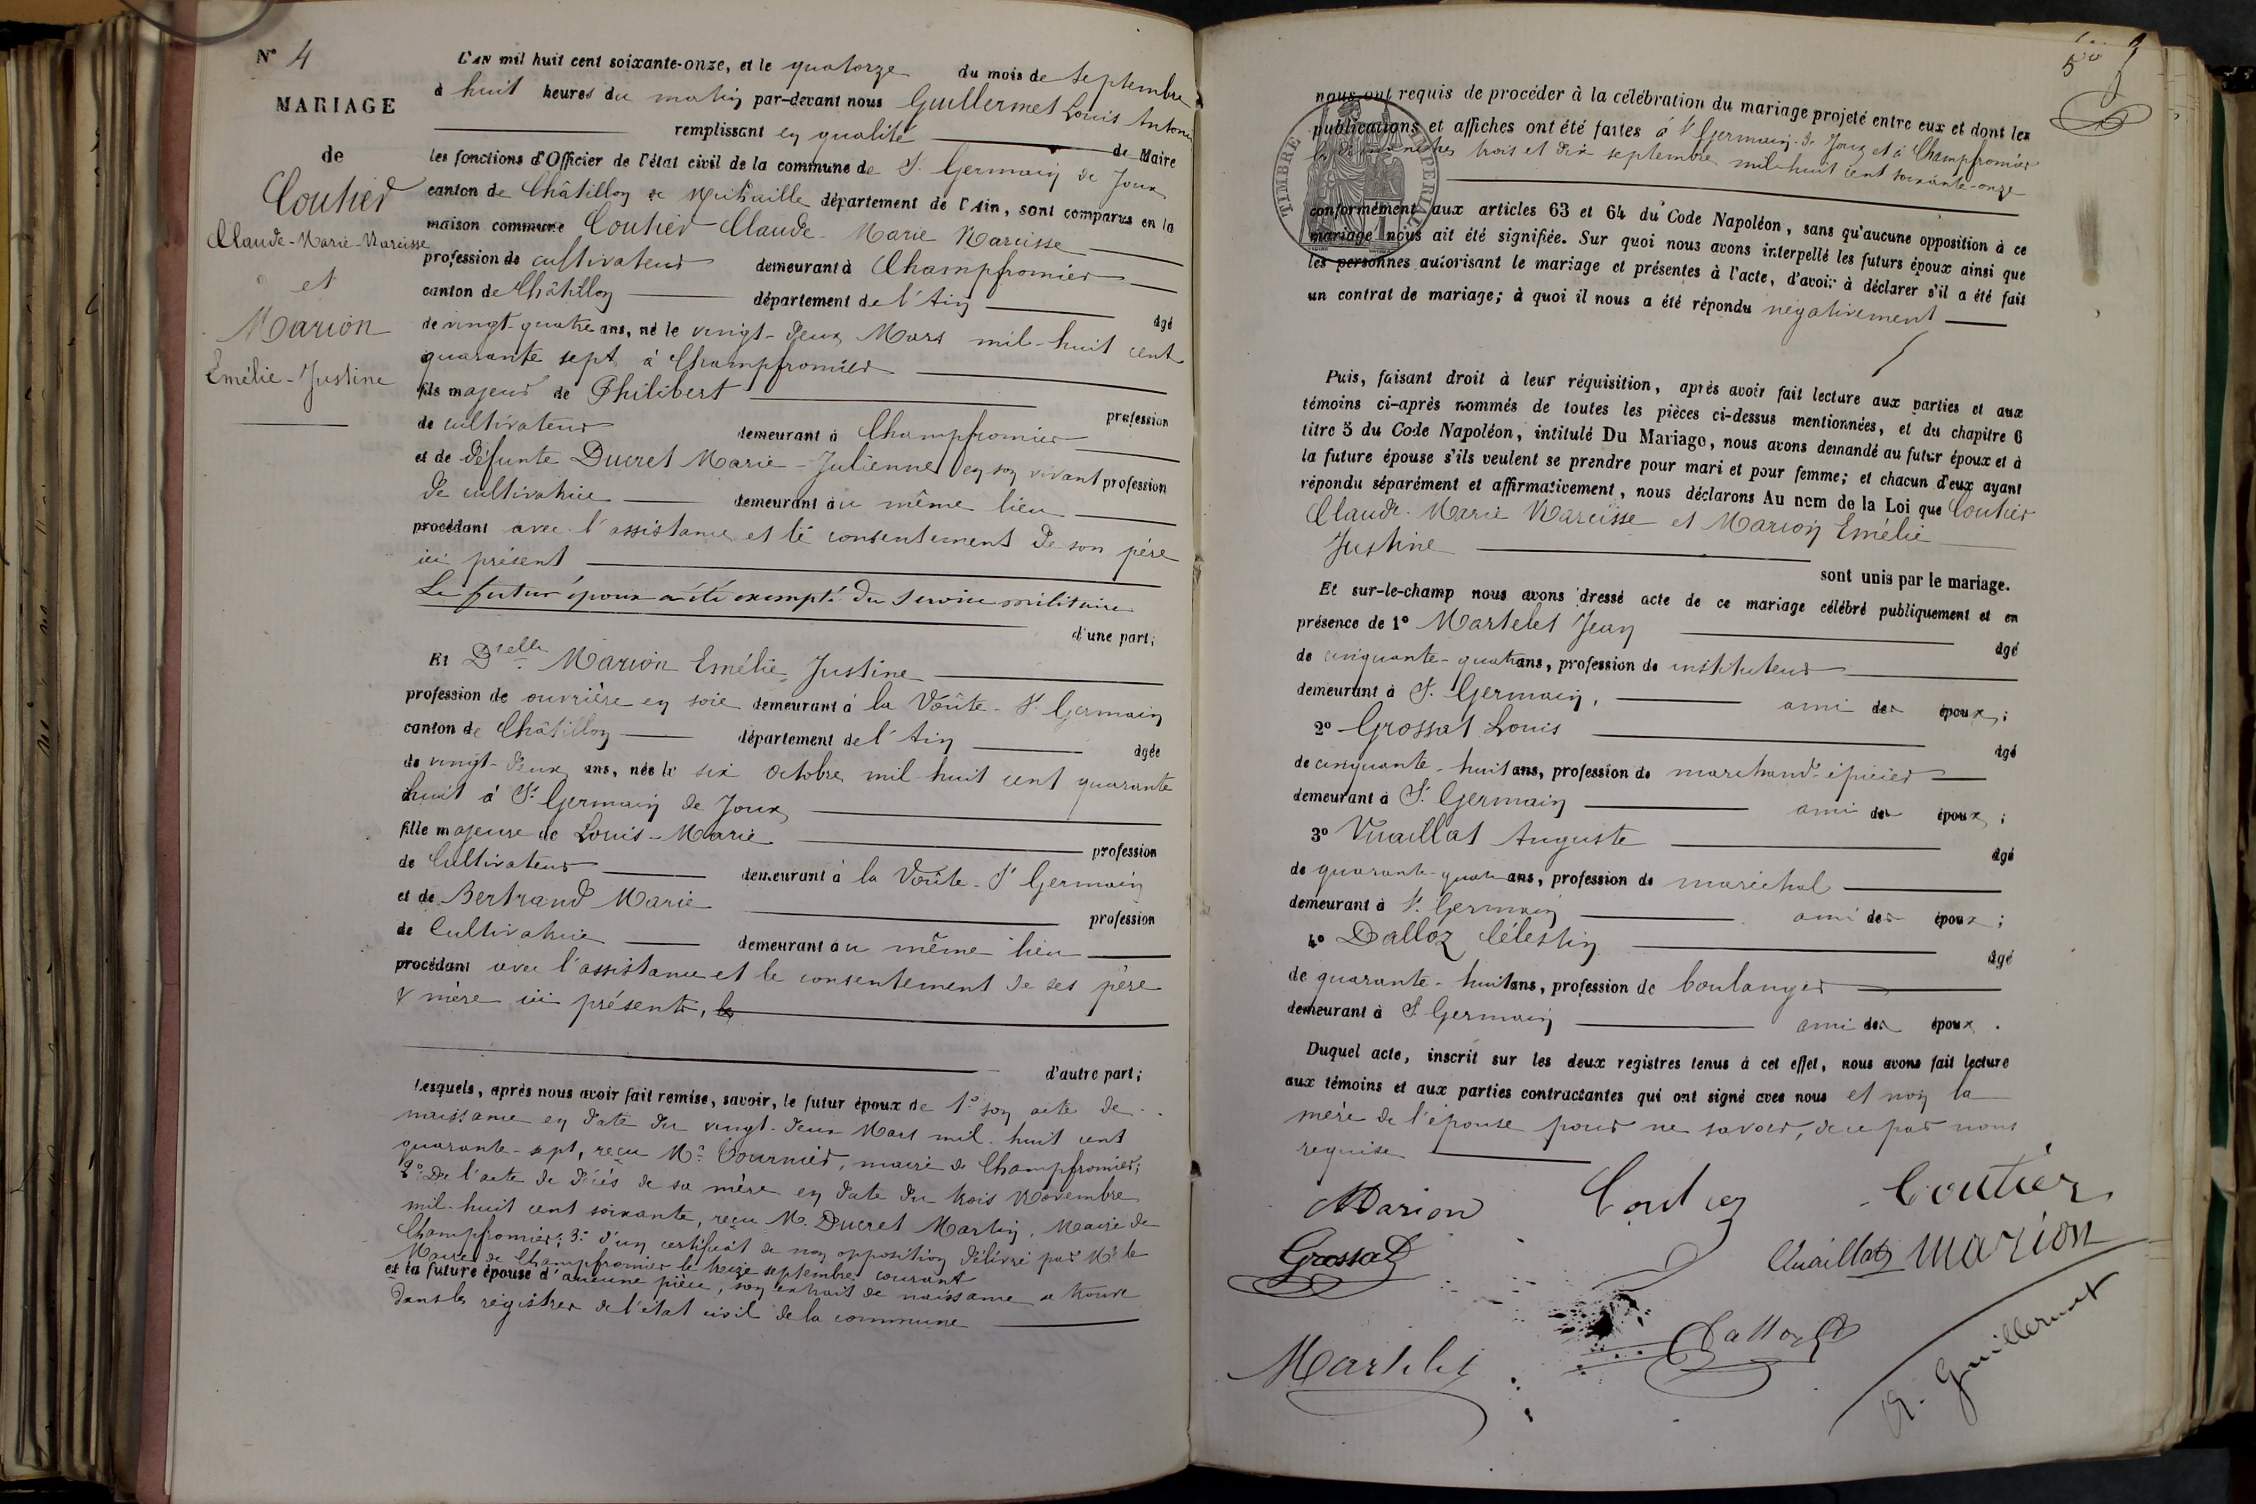 N° 4
MARIAGE
de
Coutier
Claude-Marie-Narcisse
et
Marion
Emélie-Justine
L'AN mil huit cent soixante-onze, et le quatorze du mois de Septembre
à huit heures du matin par-devant nous Guillermet Louis Antoine
remplissant en qualité de Maire
les fonctions d'Officier de l'état civil de la commune de St Germain de Joux
canton de Châtillon de Michaille département de l'Ain, sont comparus en la
maison commune Coutier Claude-Marie Narcisse
profession de cultivateur demeurant à Champfromier
canton de Châtillon département de l'Ain âgé
de vingt-quatre ans, né le vingt-deux Mars mil-huit cent
quarante sept à Champfromier
fils majeur de Philibert profession
de cultivateur demeurant à Champfromier
et de défunte Ducret Marie-Julienne en son vivant profession
de cultivatrice demeurant au même lieu
procédant avec l'assistance et le consentement de son père
ici présent
Le futur époux a été exempté du service militaire
d'une part;
Et Dlle Marion Emélie Justine
profession de ouvrière en soie demeurant à la Voûte-St Germain
canton de Châtillon département de l'Ain âgée
de vingt-deux ans, née le six Octobre mil huit cent quarante
huit à St Germain de Joux
fille majeure de Louis-Marie profession
de Cultivateur demeurant à la Voûte-St Germain
et de Bertrand Marie profession
de Cultivatrice demeurant au même lieu
procédant avec l'assistance et le consentement de ses père
& mère ici présents,
d'autre part;
Lesquels, après nous avoir fait remise, savoir, le futur époux de 1° son acte de
naissance en date du vingt-deux Mars mil-huit cent
quarante-sept, reçu Mr Tournier, maire de Champfromier;
2° De l'acte de décès de sa mère en date du trois Novembre
mil-huit cent soixante, reçu Mr Ducret Martin, Maire de
Champfromier; 3° d'un certificat de non opposition délivré par Mr le
Maire de Champfromier le treize septembre courant
et la future épouse d'aucune pièce, son extrait de naissance se trouve
dans les registres de l'état civil de la commune
nous ont requis de procéder à la célébration du mariage projeté entre eux et dont les
publications et affiches ont été faites à St Germain-de Joux et à Champfromier
les dimanches trois et dix septembre mil-huit cent soixante-onze
TIMBRE IMPERIAL
conformément aux articles 63 et 64 du Code Napoléon, sans qu'aucune opposition à ce
mariage nous ait été signifiée. Sur quoi nous avons interpellé les futurs époux ainsi que
les personnes autorisant le mariage et présentes à l'acte, d'avoir à déclarer s'il a été fait
un contrat de mariage; à quoi il nous a été répondu négativement
Puis, faisant droit à leur réquisition, après avoir fait lecture aux parties et aux
témoins ci-après nommés de toutes les pièces ci-dessus mentionnées, et du chapitre 6
titre 5 du Code Napoléon, intitulé Du Mariage, nous avons demandé au futur époux et à
la future épouse s'ils veulent se prendre pour mari et pour femme; et chacun d'eux ayant
répondu séparément et affirmativement, nous déclarons Au nom de la Loi que Coutier
Claude-Marie Narcisse et Marion Emélie
Justine
sont unis par le mariage.
Et sur-le-champ nous avons dressé acte de ce mariage célébré publiquement et en
présence de 1° Martelet Jean âgé
de cinquante-quatre ans, profession de instituteur
demeurant à St Germain, ami des époux;
2° Grossat Louis âgé
de cinquante-huit ans, profession de marchand-épicier
demeurant à St Germain ami des époux;
3° Vuaillat Auguste âgé
de quarante-quatre ans, profession de maréchal
demeurant à St Germain ami des époux;
4° Dalloz Célestin âgé
de quarante-huit ans, profession de boulanger
demeurant à St Germain ami des époux.
Duquel acte, inscrit sur les deux registres tenus à cet effet, nous avons fait lecture
aux témoins et aux parties contractantes qui ont signé avec nous et non la
mère de l'épouse pour ne savoir, de ce par nous
requise
Marion Coutier Coutier
Grossat Vuaillat Marion
Martelet Dalloz A. Guillermet